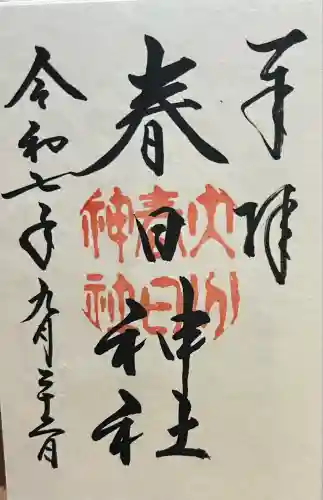 奉拝
春日神社
令和七年九月二十二日
大分
春日
神社